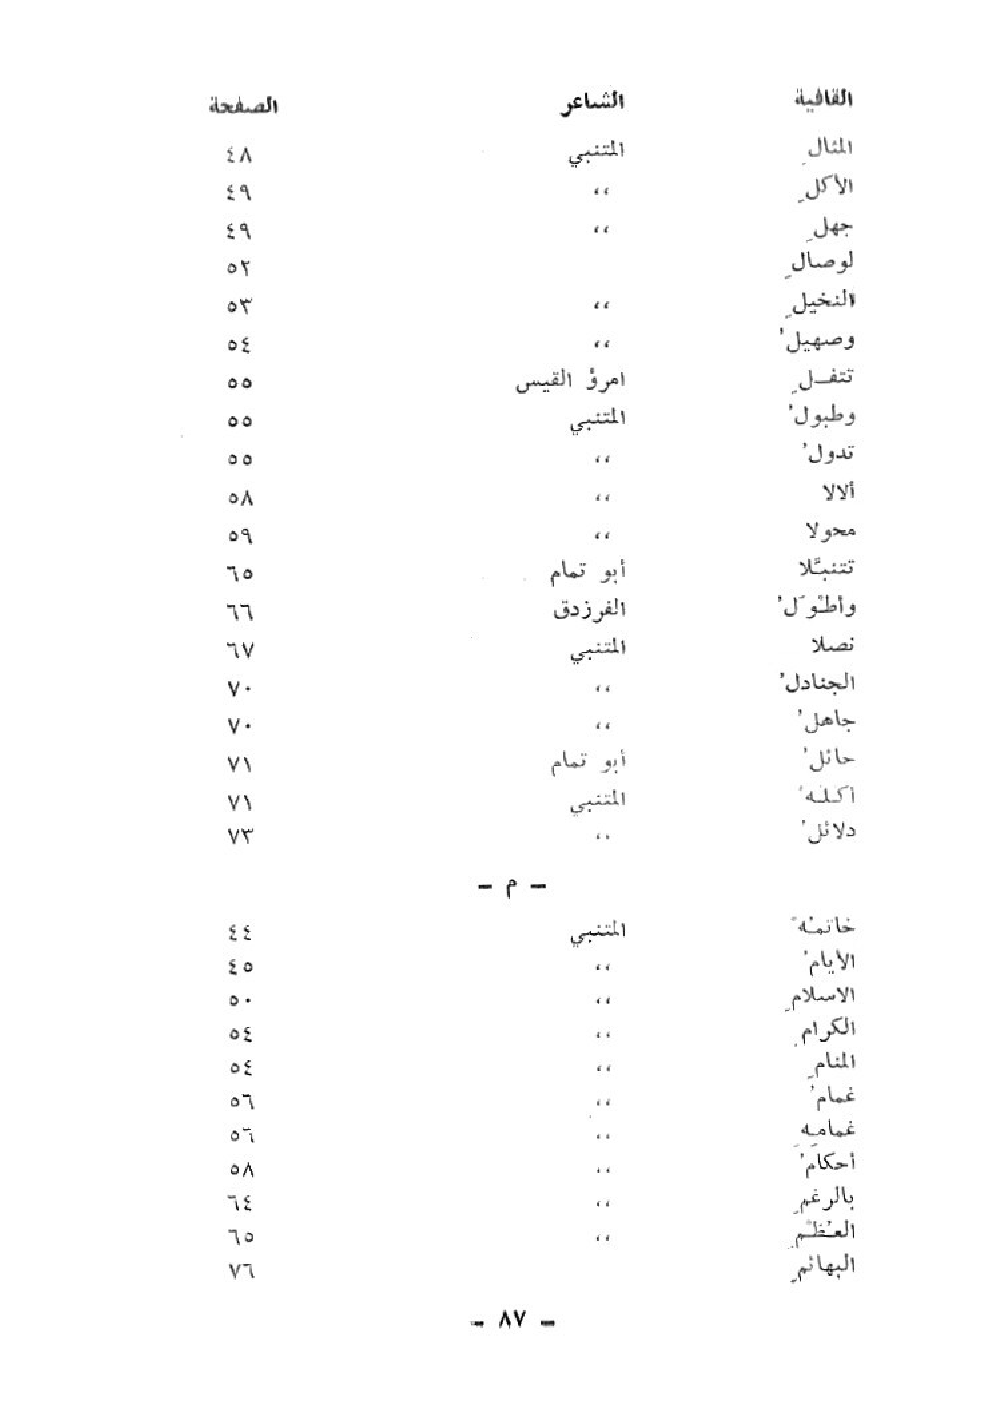 القافية الشاعر الصفحة
المثالِ المتنبي ٤٨
الأكلِ ،، ٤٩
جهلِ ،، ٤٩
لوصالِ ٥٢
النخيلِ ،، ٥٣
وصهيلُ ،، ٥٤
تتفلِ امرؤ القيس ٥٥
وطبولُ المتنبي ٥٥
تدولُ ،، ٥٥
ألالا ،، ٥٨
محولا ،، ٥٩
تتنبَّلا أبو تمام ٦٥
وأطْوَلُ الفرزدق ٦٦
نصلا المتنبي ٦٧
الجنادلُ ،، ٧٠
جاهلُ ،، ٧٠
حائلُ أبو تمام ٧١
أكلُهُ المتنبي ٧١
دلائلُ ،، ٧٣
- م -
خاتمُهْ المتنبي ٤٤
الأيامُ ،، ٤٥
الاسلامِ ،، ٥٠
الكرامِ ،، ٥٤
المنامِ ،، ٥٤
غمامُ ،، ٥٦
غمامِهِ ،، ٥٦
أحكامُ ،، ٥٨
بالرغمِ ،، ٦٤
العُظْمِ ،، ٦٥
البهائمِ ٧٦
- ٨٧ -